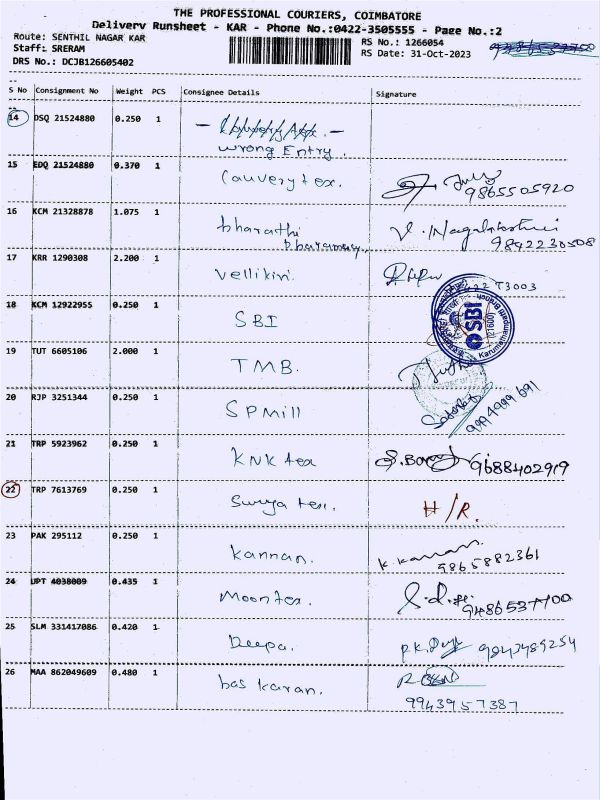 THE PROFESSIONAL COURIERS, COIMBATORE
Delivery Runsheet - KAR - Phone No.:0422-3505555 - Page No.:2
Route: SENTHIL NAGAR KAR
Staff: SRERAM
DRS No.: DCJB126605402
RS No.: 1266054
RS Date: 31-Oct-2023
S No Consignment No Weight PCS Consignee Details Signature
14 DSQ 21524880 0.250 1
wrong Entry.
15 EDQ 21524880 0.370 1 Cauvery tex.
9865505920
16 KCM 21328878 1.075 1 bharathi
V. Nagalakshmi
9842230508
17 KRR 1290308 2.200 1 Vellikiri.
T3003
18 KCM 12922955 0.250 1 SBI
SBI
19 TUT 6605106 2.000 1 TMB.
20 RJP 3251344 0.250 1 SPMill
21 TRP 5923962 0.250 1 KNK tex 9688402919
22 TRP 7613769 0.250 1 Surya tex. H/R.
23 PAK 295112 0.250 1 Kannan. K. Kannan.
9865882361
24 UPT 4038009 0.435 1 Moontex.
25 SLM 331417086 0.420 1 Deepa.
26 MAA 862049609 0.480 1 baskaran.
9943957387